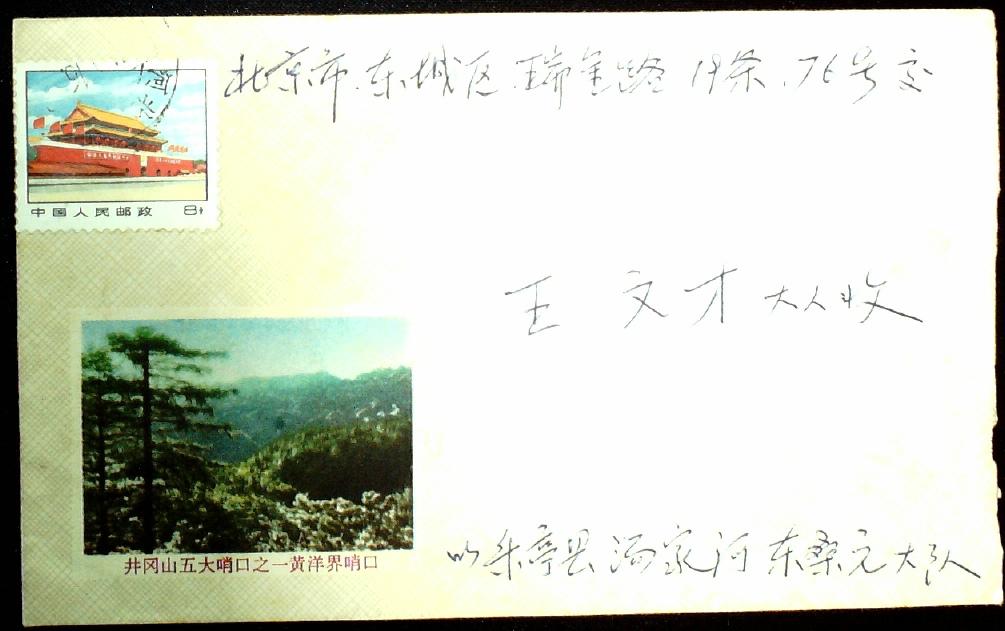 北京市.东城区.瑞金路19条.76号交
中国人民邮政 8分
王文才大人收
井冈山五大哨口之一黄洋界哨口
乐亭县汤家河东桑元大队